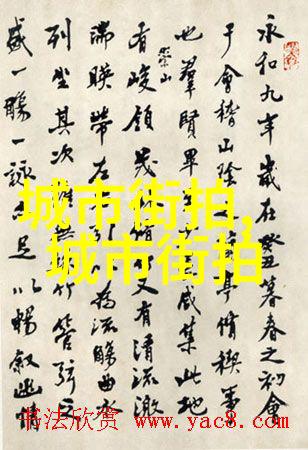 永和九年歲在癸丑暮春之初會
于會稽山陰亭脩稧事
也羣賢畢咸集此地
有崇山峻領茂脩又有清流激
湍暎帶左引為流觴曲水
列坐其次竹管弦之
盛一觴一詠足以暢敘幽情
城市街拍,
城市街拍
书法欣赏 www.yac8.com